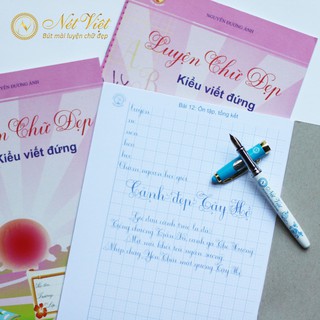 Nét Việt
Bút mài luyện chữ đẹp
NGUYỄN HƯƠNG ANH
Luyện Chữ Đẹp
Kiểu viết đứng
NGUYỄN HƯƠNG ANH
Luyện Chữ Đẹp
Kiểu viết đứng
Bài 12: Ôn tập, tổng kết
Luyện
Cảnh đẹp Tây Hồ
Gió đưa cành trúc la đà
Tiếng chuông Trấn Vũ, canh gà Thọ Xương
Mịt mù khói tỏa ngàn sương
Nhịp chày Yên Thái, mặt gương Tây Hồ